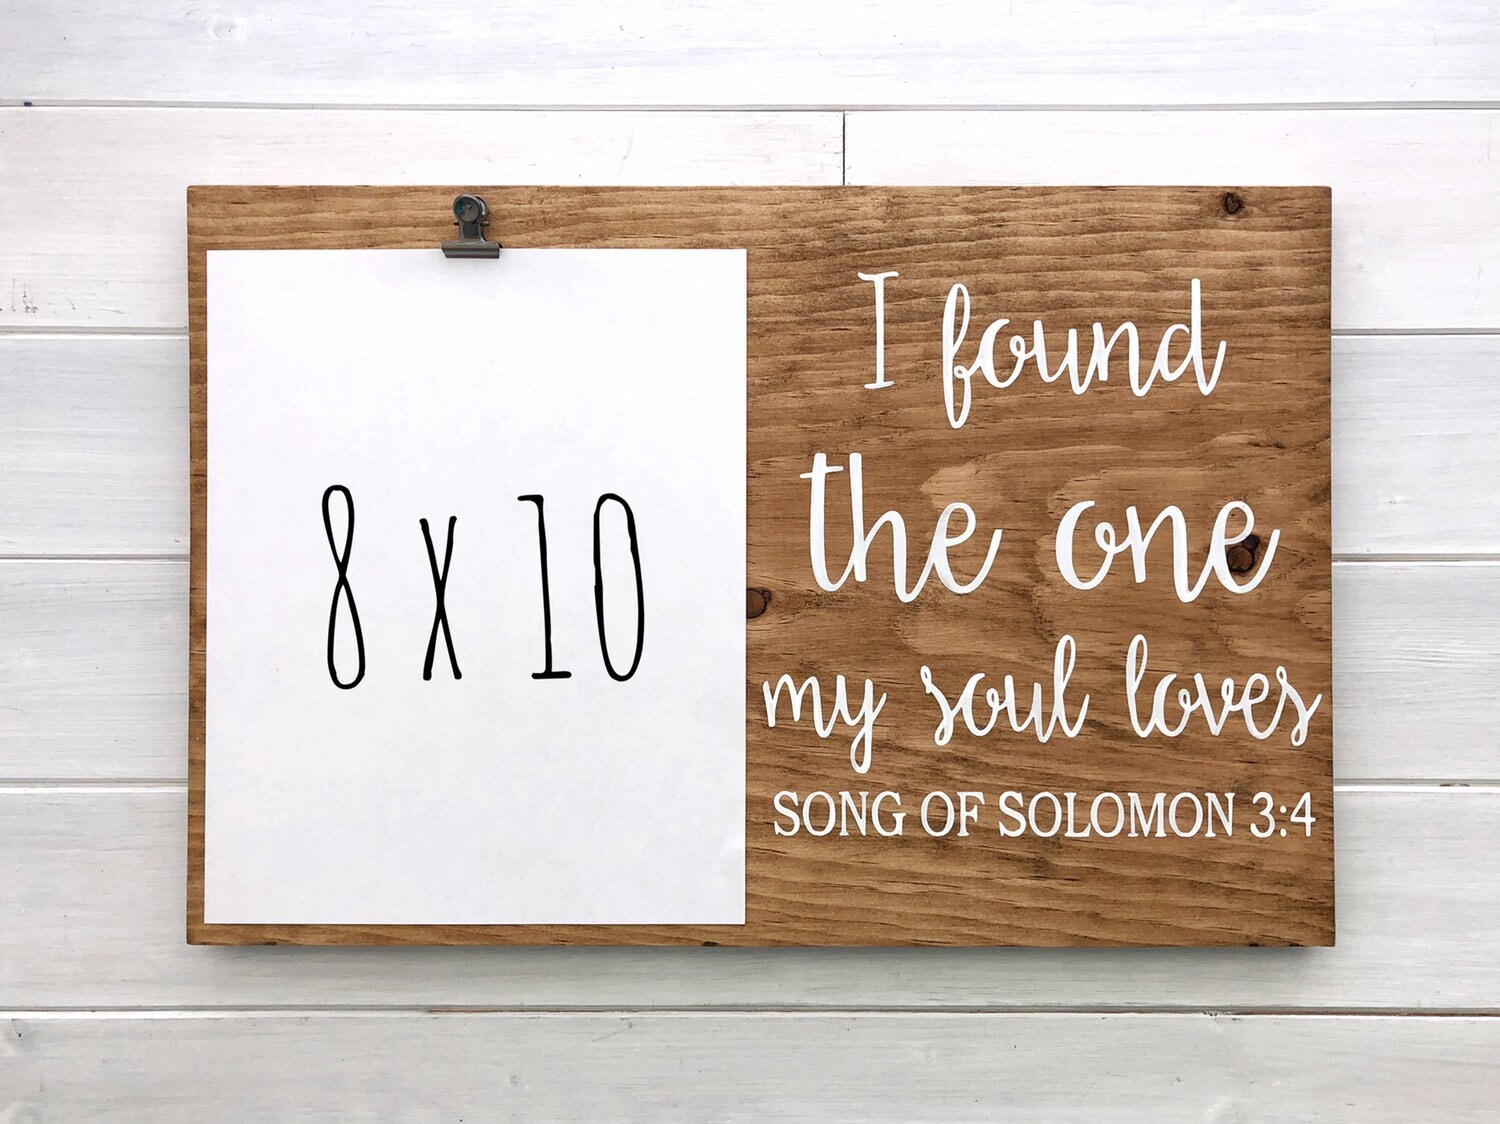 8 x 10
I found
the one
my soul loves
SONG OF SOLOMON 3:4